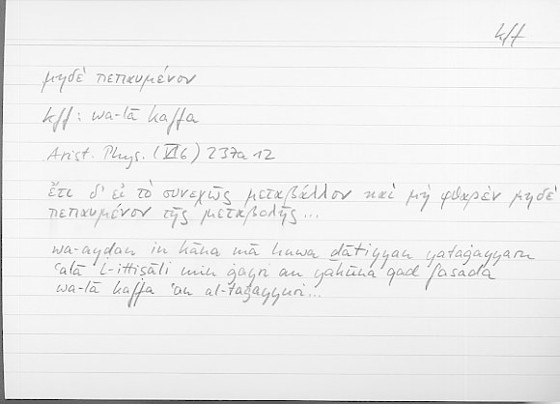 kff
μηδὲ πεπαυμένον
kff: wa-lā kaffa
Arist. Phys. (VI 6) 237a 12
ἔτι δ' εἰ τὸ συνεχῶς μεταβάλλον καὶ μὴ φθαρὲν μηδὲ
πεπαυμένον τῆς μεταβολῆς...
wa-ayḍan in kāna mā huwa yataġayyaru
ʿalā l-ittiṣāli min ġayri an yakūna qad fasada
wa-lā kaffa ʿan al-taġayyuri...